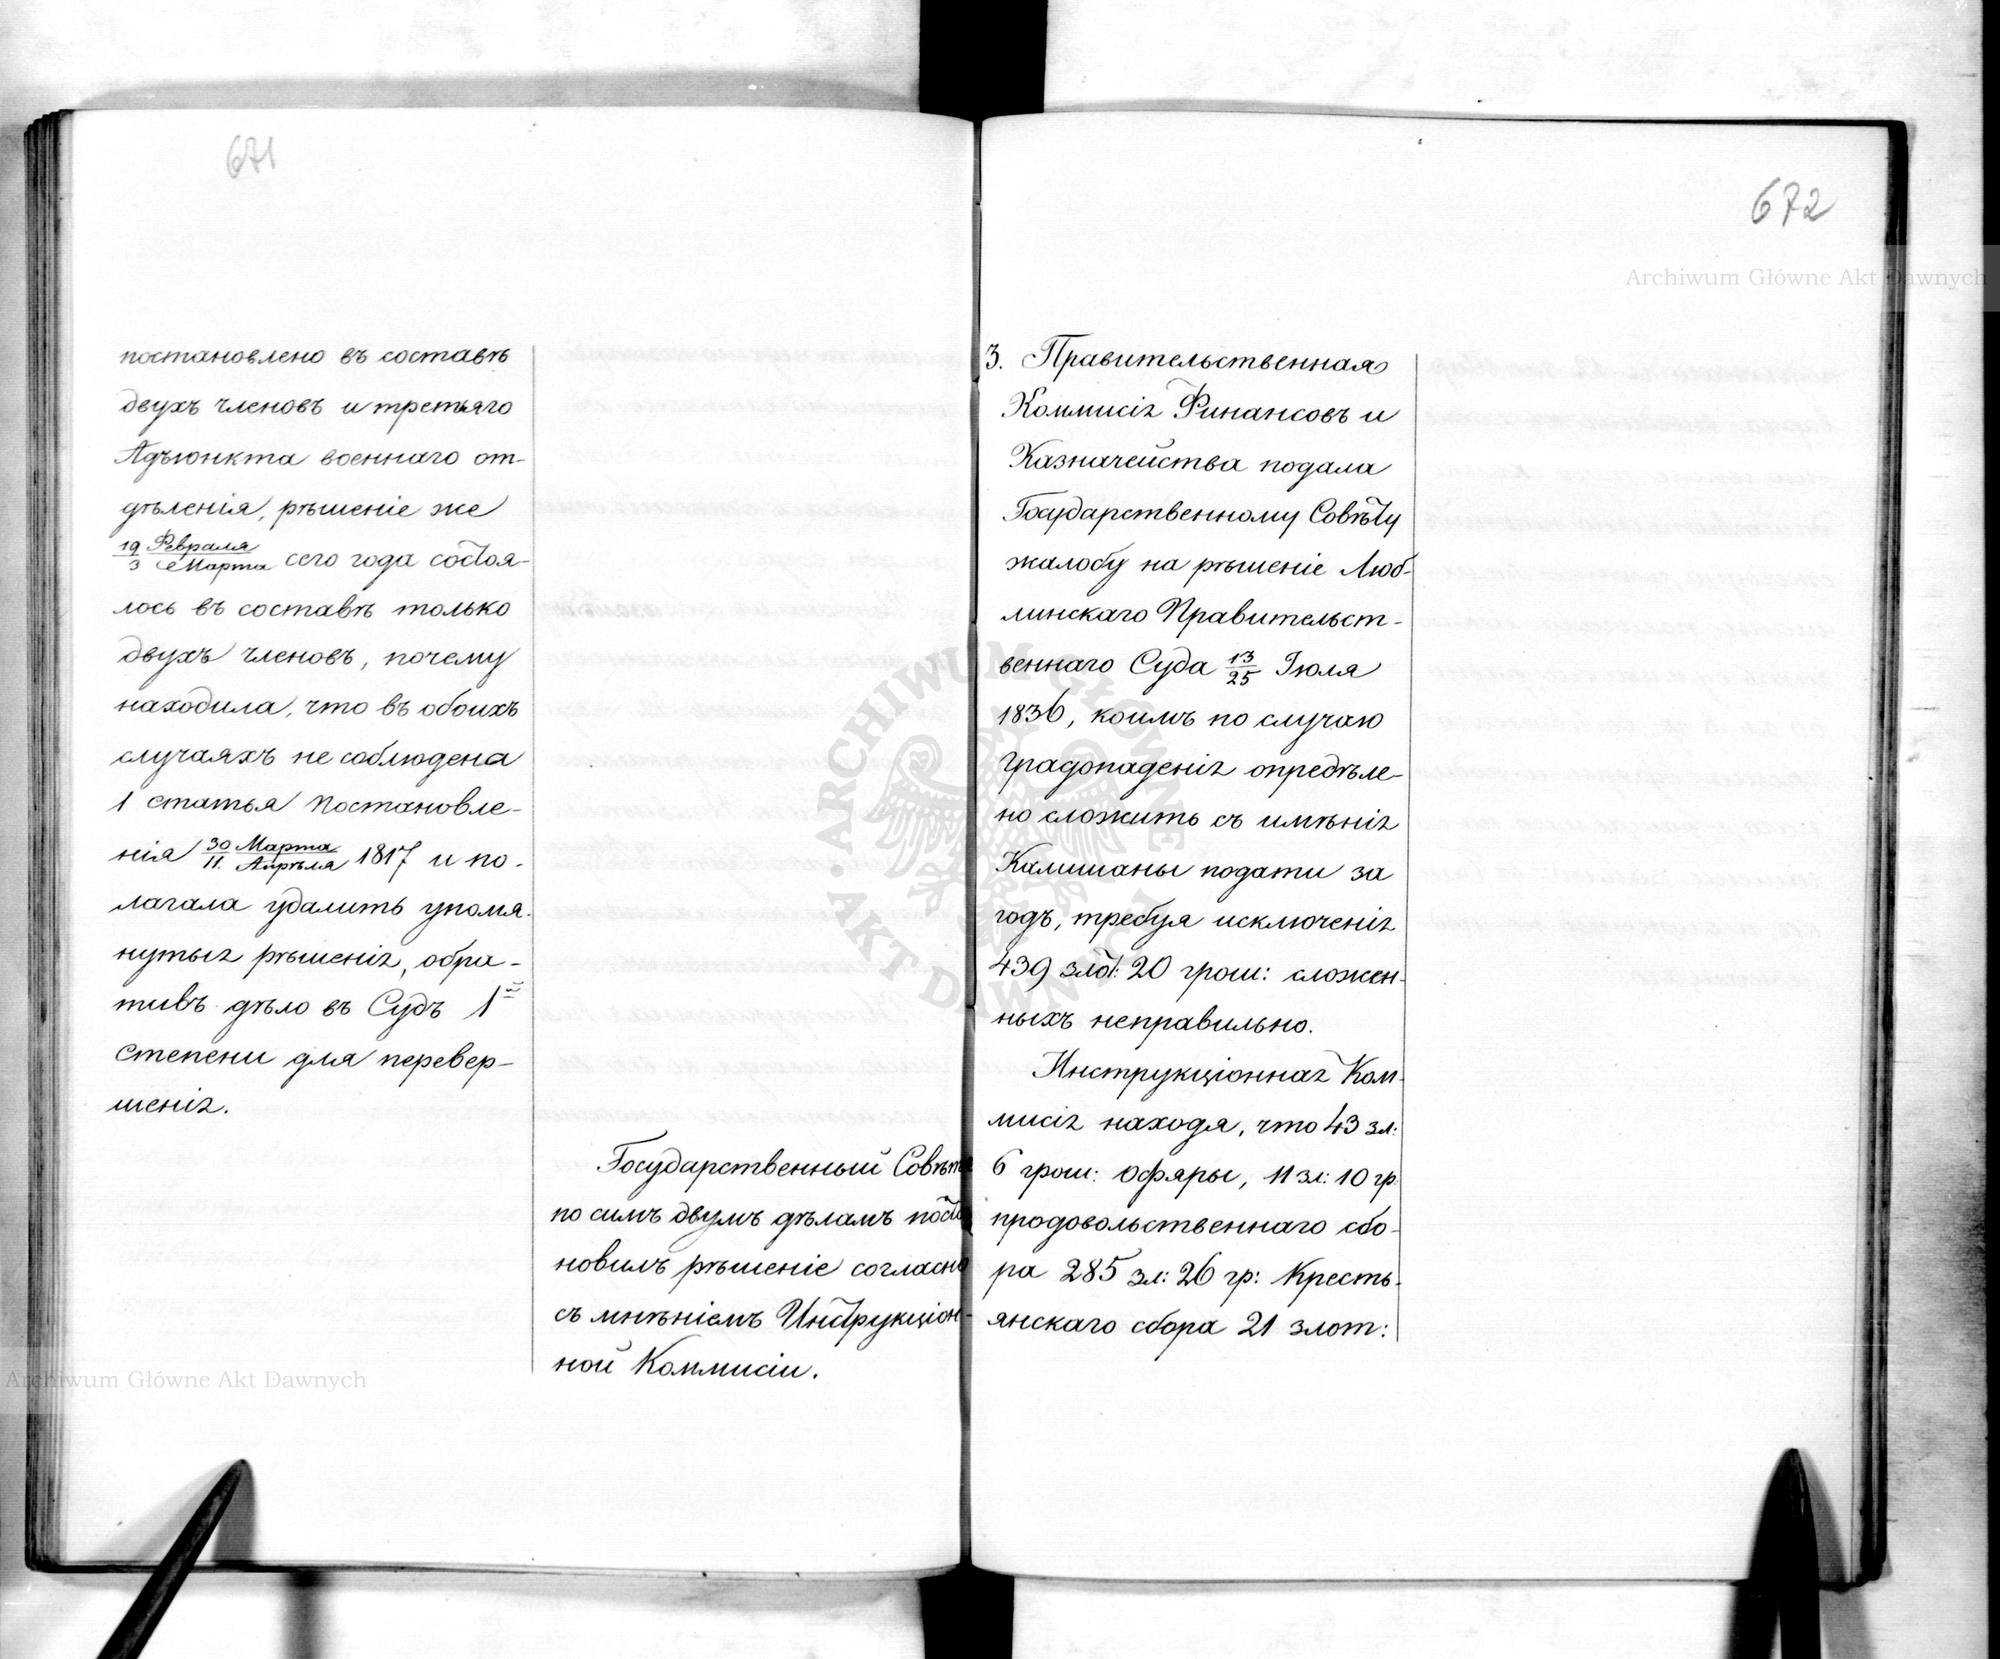 671
постановлено въ составѣ
двухъ членовъ и третьяго
Адъюнкта военнаго от-
дѣленія, рѣшеніе же
19 Февраля / 3 Марта сего года состоя-
лось въ составѣ только
двухъ членовъ, почему
находила, что въ обоихъ
случаяхъ не соблюдена
1 статья Постановле-
нія 30 Марта / 11. Апрѣля 1817 и по-
лагала удалить упомя-
нутыя рѣшенія, обра-
тивъ дѣло въ Судъ 1й
степени для перевер-
шенія.
Государственный Совѣтъ
по симъ двумъ дѣламъ поста
новилъ рѣшеніе согласно
съ мнѣніемъ Инструкціон-
ной Коммисіи.
672
3. Правительственная
Коммисія Финансовъ и
Казначейства подала
Государственному Совѣту
жалобу на рѣшеніе Люб-
линскаго Правительст-
веннаго Суда 13/25 Іюля
1836, коимъ по случаю
градопаденія опредѣле-
но сложить съ имѣнія
Камшаны подати за
годъ, требуя исключенія
439 злот: 20 грош: сложен-
ныхъ неправильно.
Инструкціонная Ком-
мисія находя, что 43 зл:
6 грош: офяры, 11 зл: 10 гр:
продовольственнаго сбо-
ра 285 зл: 26 гр: Кресть-
янскаго сбора 21 злот:
Archiwum Główne Akt Dawnych
Archiwum Główne Akt Dawnych
ARCHIWUM GŁÓWNE AKT DAWNYCH